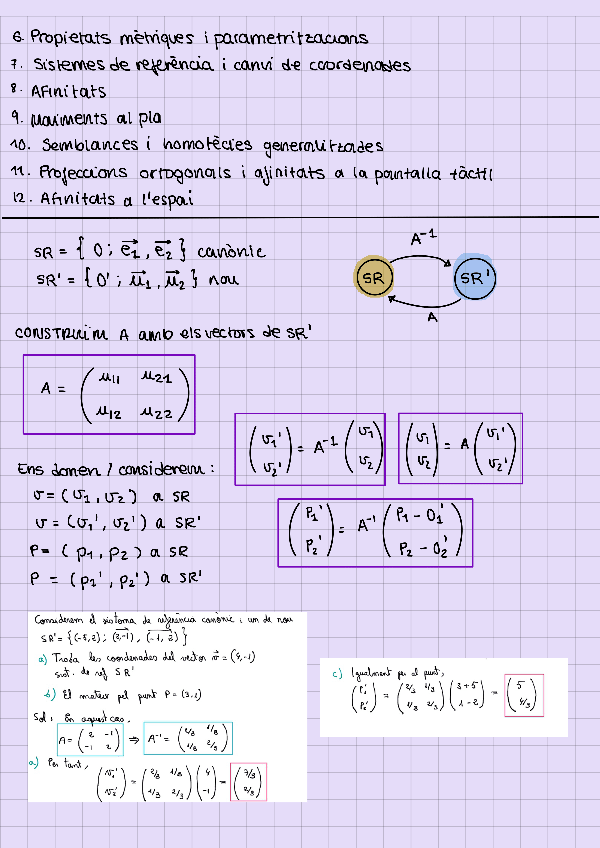 6. Propietats mètriques i parametritzacions
7. Sistemes de referència i canvi de coordenades
8. Afinitats
9. Moviments al pla
10. Semblances i homotècies generalitzades
11. Projeccions ortogonals i afinitats a la pantalla tàctil
12. Afinitats a l'espai
SR = { O ; e₁, e₂ } canònic
SR' = { O' ; u₁, u₂ } nou
A⁻¹
SR
SR'
A
CONSTRUïm A amb els vectors de SR'
A = ( u₁₁ u₂₁
u₁₂ u₂₂ )
( v₁'
v₂' ) = A⁻¹ ( v₁
v₂ )
( v₁
v₂ ) = A ( v₁'
v₂' )
Ens donen / considerem :
v = (v₁, v₂) a SR
v = (v₁', v₂') a SR'
P = ( p₁, p₂ ) a SR
P = (p₁', p₂') a SR'
( P₁'
P₂' ) = A⁻¹ ( P₁ - O₁'
P₂ - O₂' )
Considerem el sistema de referència canònic i un de nou
SR' = {(-5,2) ; (2,-1), (-1,2)}
a) Troba les coordenades del vector v = (4,-1)
sist. de ref SR'
b) El mateix pel punt P = (3,1)
Sol: En aquest cas,
A = ( 2 -1
-1 2 ) ⇒ A⁻¹ = ( 2/3 1/3
1/3 2/3 )
a) Per tant,
( v₁'
v₂' ) = ( 2/3 1/3
1/3 2/3 ) ( 4
-1 ) = ( 7/3
2/3 )
c) Igualment per al punt,
( P₁'
P₂' ) = ( 2/3 1/3
1/3 2/3 ) ( 3+5
1-2 ) = ( 5
4/3 )